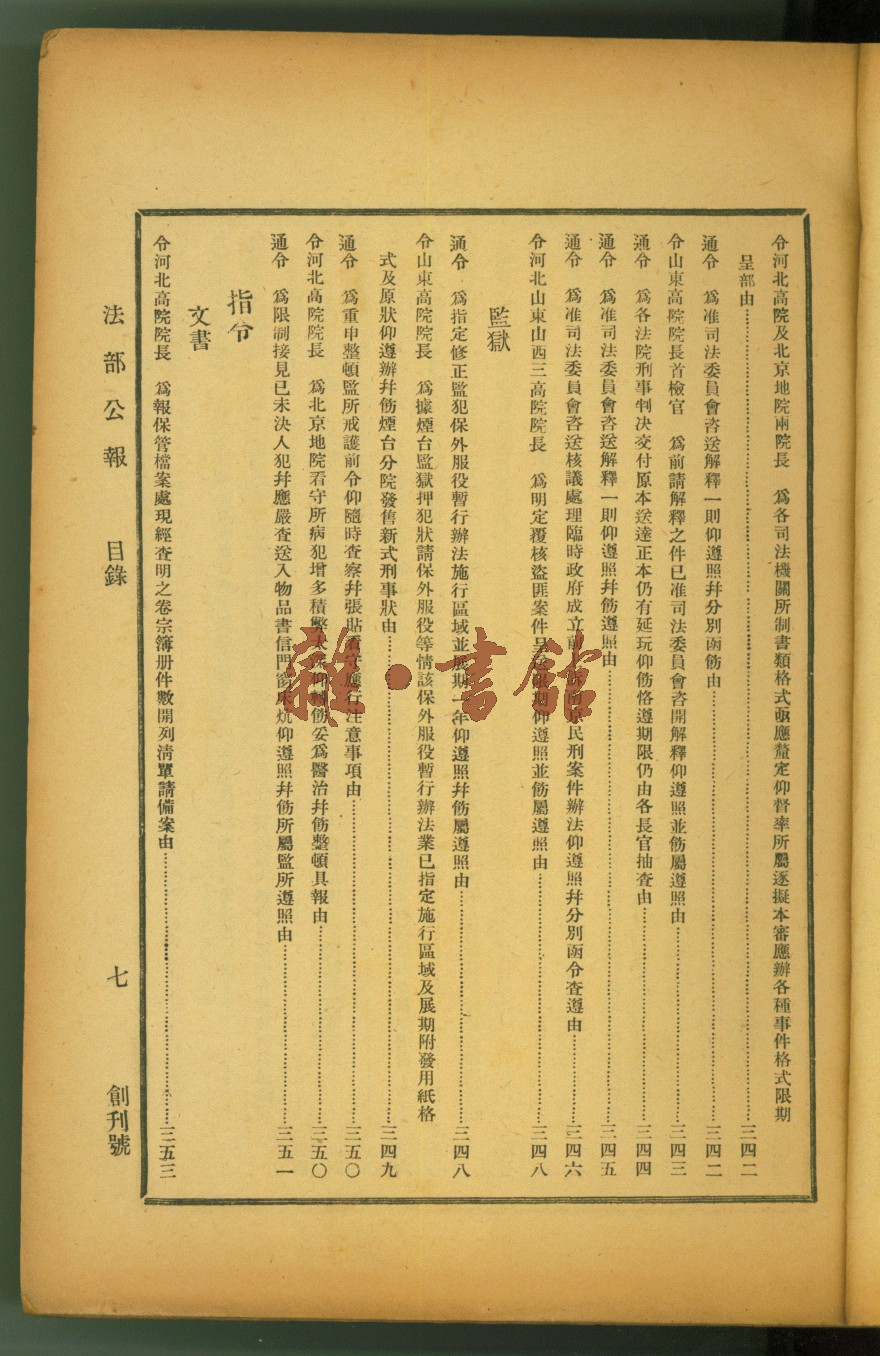 令河北高院及北京地院兩院長　爲各司法機關所制書類格式亟應釐定仰督率所屬逐擬本審應辦各種事件格式限期
呈部由……三四二
通令　爲准司法委員會咨送解釋一則仰遵照幷分別函飭由……三四二
令山東高院院長首檢官　爲前請解釋之件已准司法委員會咨開解釋仰遵照並飭屬遵照由……三四三
通令　爲各法院刑事判决交付原本送達正本仍有延玩仰飭恪遵期限仍由各長官抽查由……三四四
通令　爲准司法委員會咨送解釋一則仰遵照幷飭遵照由……三四五
通令　爲准司法委員會咨送核議處理臨時政府成立前南京民刑案件辦法仰遵照幷分別函令查遵由……三四六
令河北山東山西三高院院長　爲明定覆核盜匪案件呈送限期仰遵照並飭屬遵照由……三四八
監獄
通令　爲指定修正監犯保外服役暫行辦法施行區域並展期一年仰遵照幷飭屬遵照由……三四八
令山東高院院長　爲據煙台監獄押犯狀請保外服役等情該保外服役暫行辦法業已指定施行區域及展期附發用紙格
式及原狀仰遵辦幷飭煙台分院發售新式刑事狀由……三四九
通令　爲重申整頓監所戒護前令仰隨時查察幷張貼看守應行注意事項由……三五〇
令河北高院院長　爲北京地院看守所病犯增多積弊太深仰轉飭妥爲醫治幷飭整頓具報由……三五〇
通令　爲限制接見已未決人犯幷應嚴查送入物品書信門窗床炕仰遵照幷飭所屬監所遵照由……三五一
指令
文書
令河北高院院長　爲報保管檔案處現經查明之卷宗簿册件數開列淸單請備案由……三五三
法部公報　目錄　七　創刊號
雜·書館